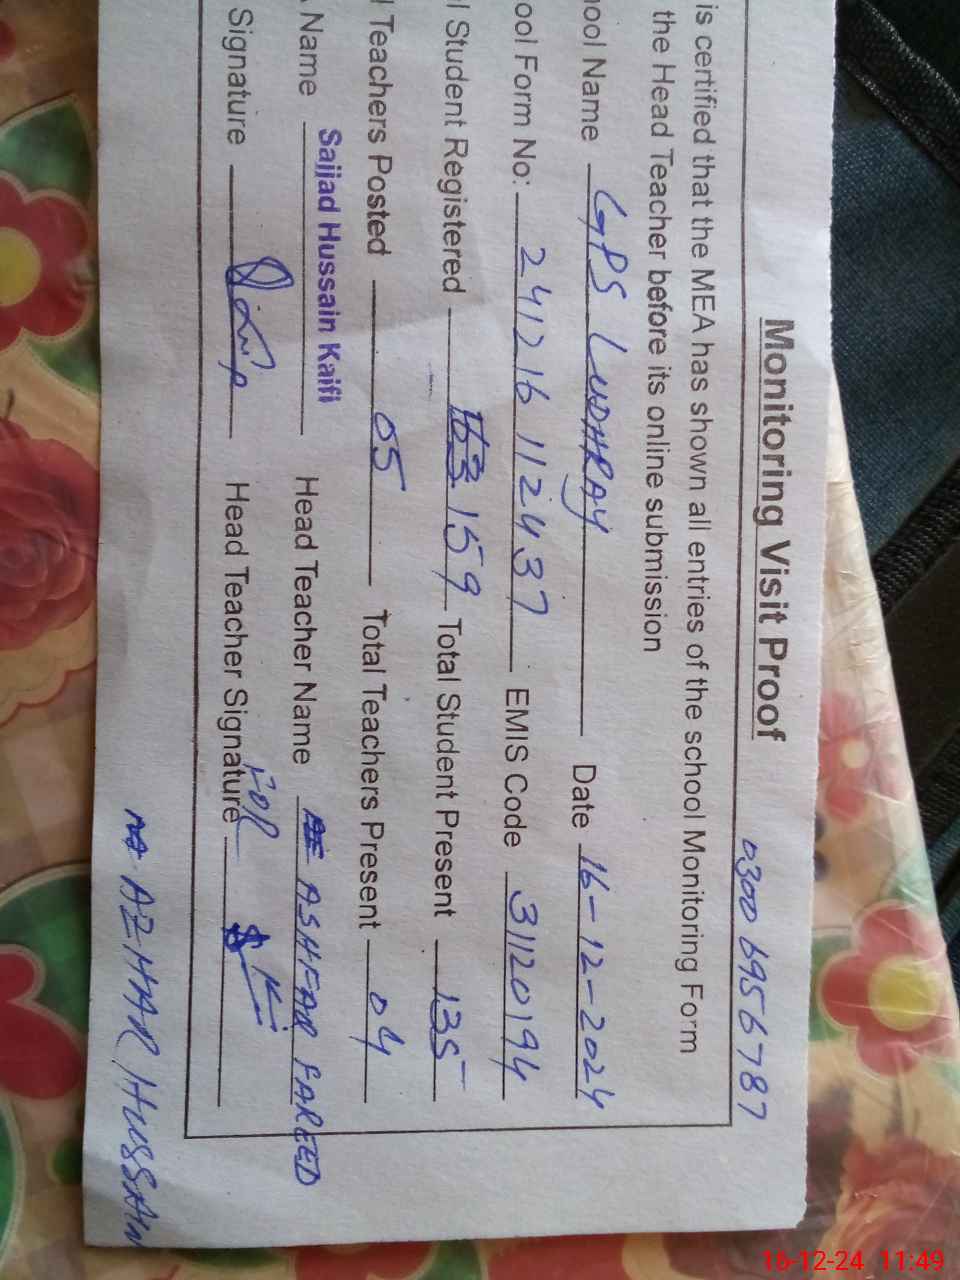 0300 6956787
Monitoring Visit Proof
is certified that the MEA has shown all entries of the school Monitoring Form
the Head Teacher before its online submission
ool Name GPS LUDHRAY Date 16-12-2024
ool Form No: 241216112437 EMIS Code 31120194
l Student Registered 163 159 Total Student Present 135
l Teachers Posted 05 Total Teachers Present 04
Name Sajjad Hussain Kaifi Head Teacher Name ASHFAR FAREED
Signature Head Teacher Signature FOR
AZHAR HUSSAIN
16-12-24 11:49